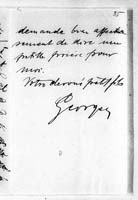 25
demande bien affectueu
sement de dire une
petite prière pour
moi.
Votre dévoué petit fils
Georges